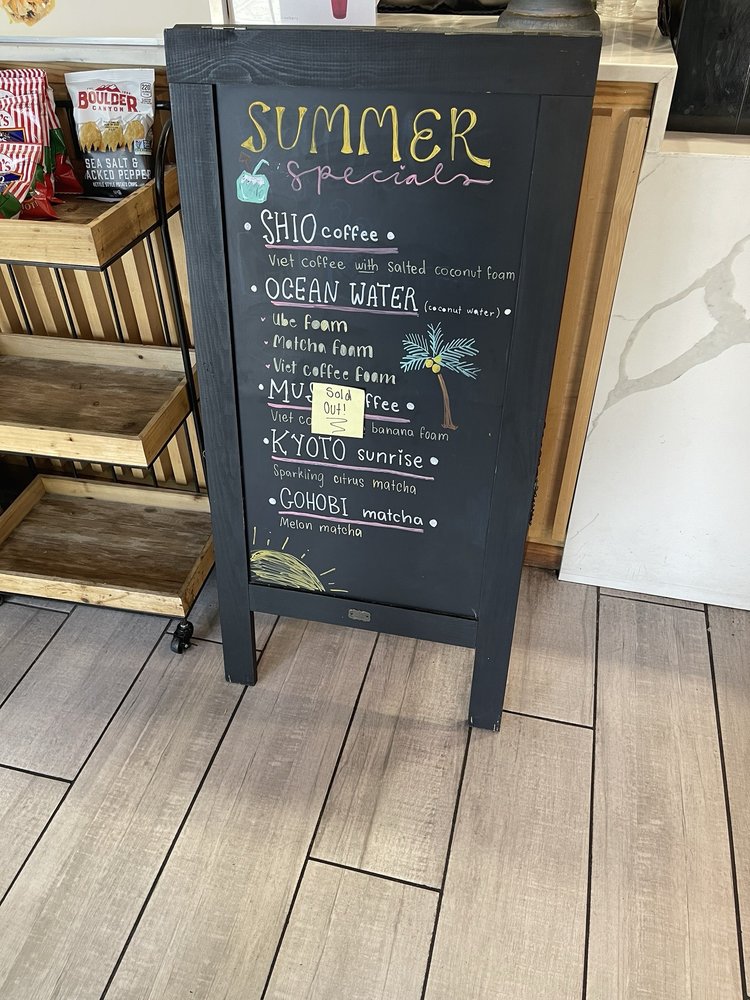 BOULDER
CANYON
SEA SALT &
ACKED PEPPER
KETTLE STYLE POTATO CHIPS
SUMMER
specials
SHIO coffee
Viet coffee with salted coconut foam
OCEAN WATER (coconut water)
Ube foam
Matcha foam
Viet coffee foam
Sold
Out!
banana foam
KYOTO sunrise
Sparkling citrus matcha
GOHOBI matcha
Melon matcha